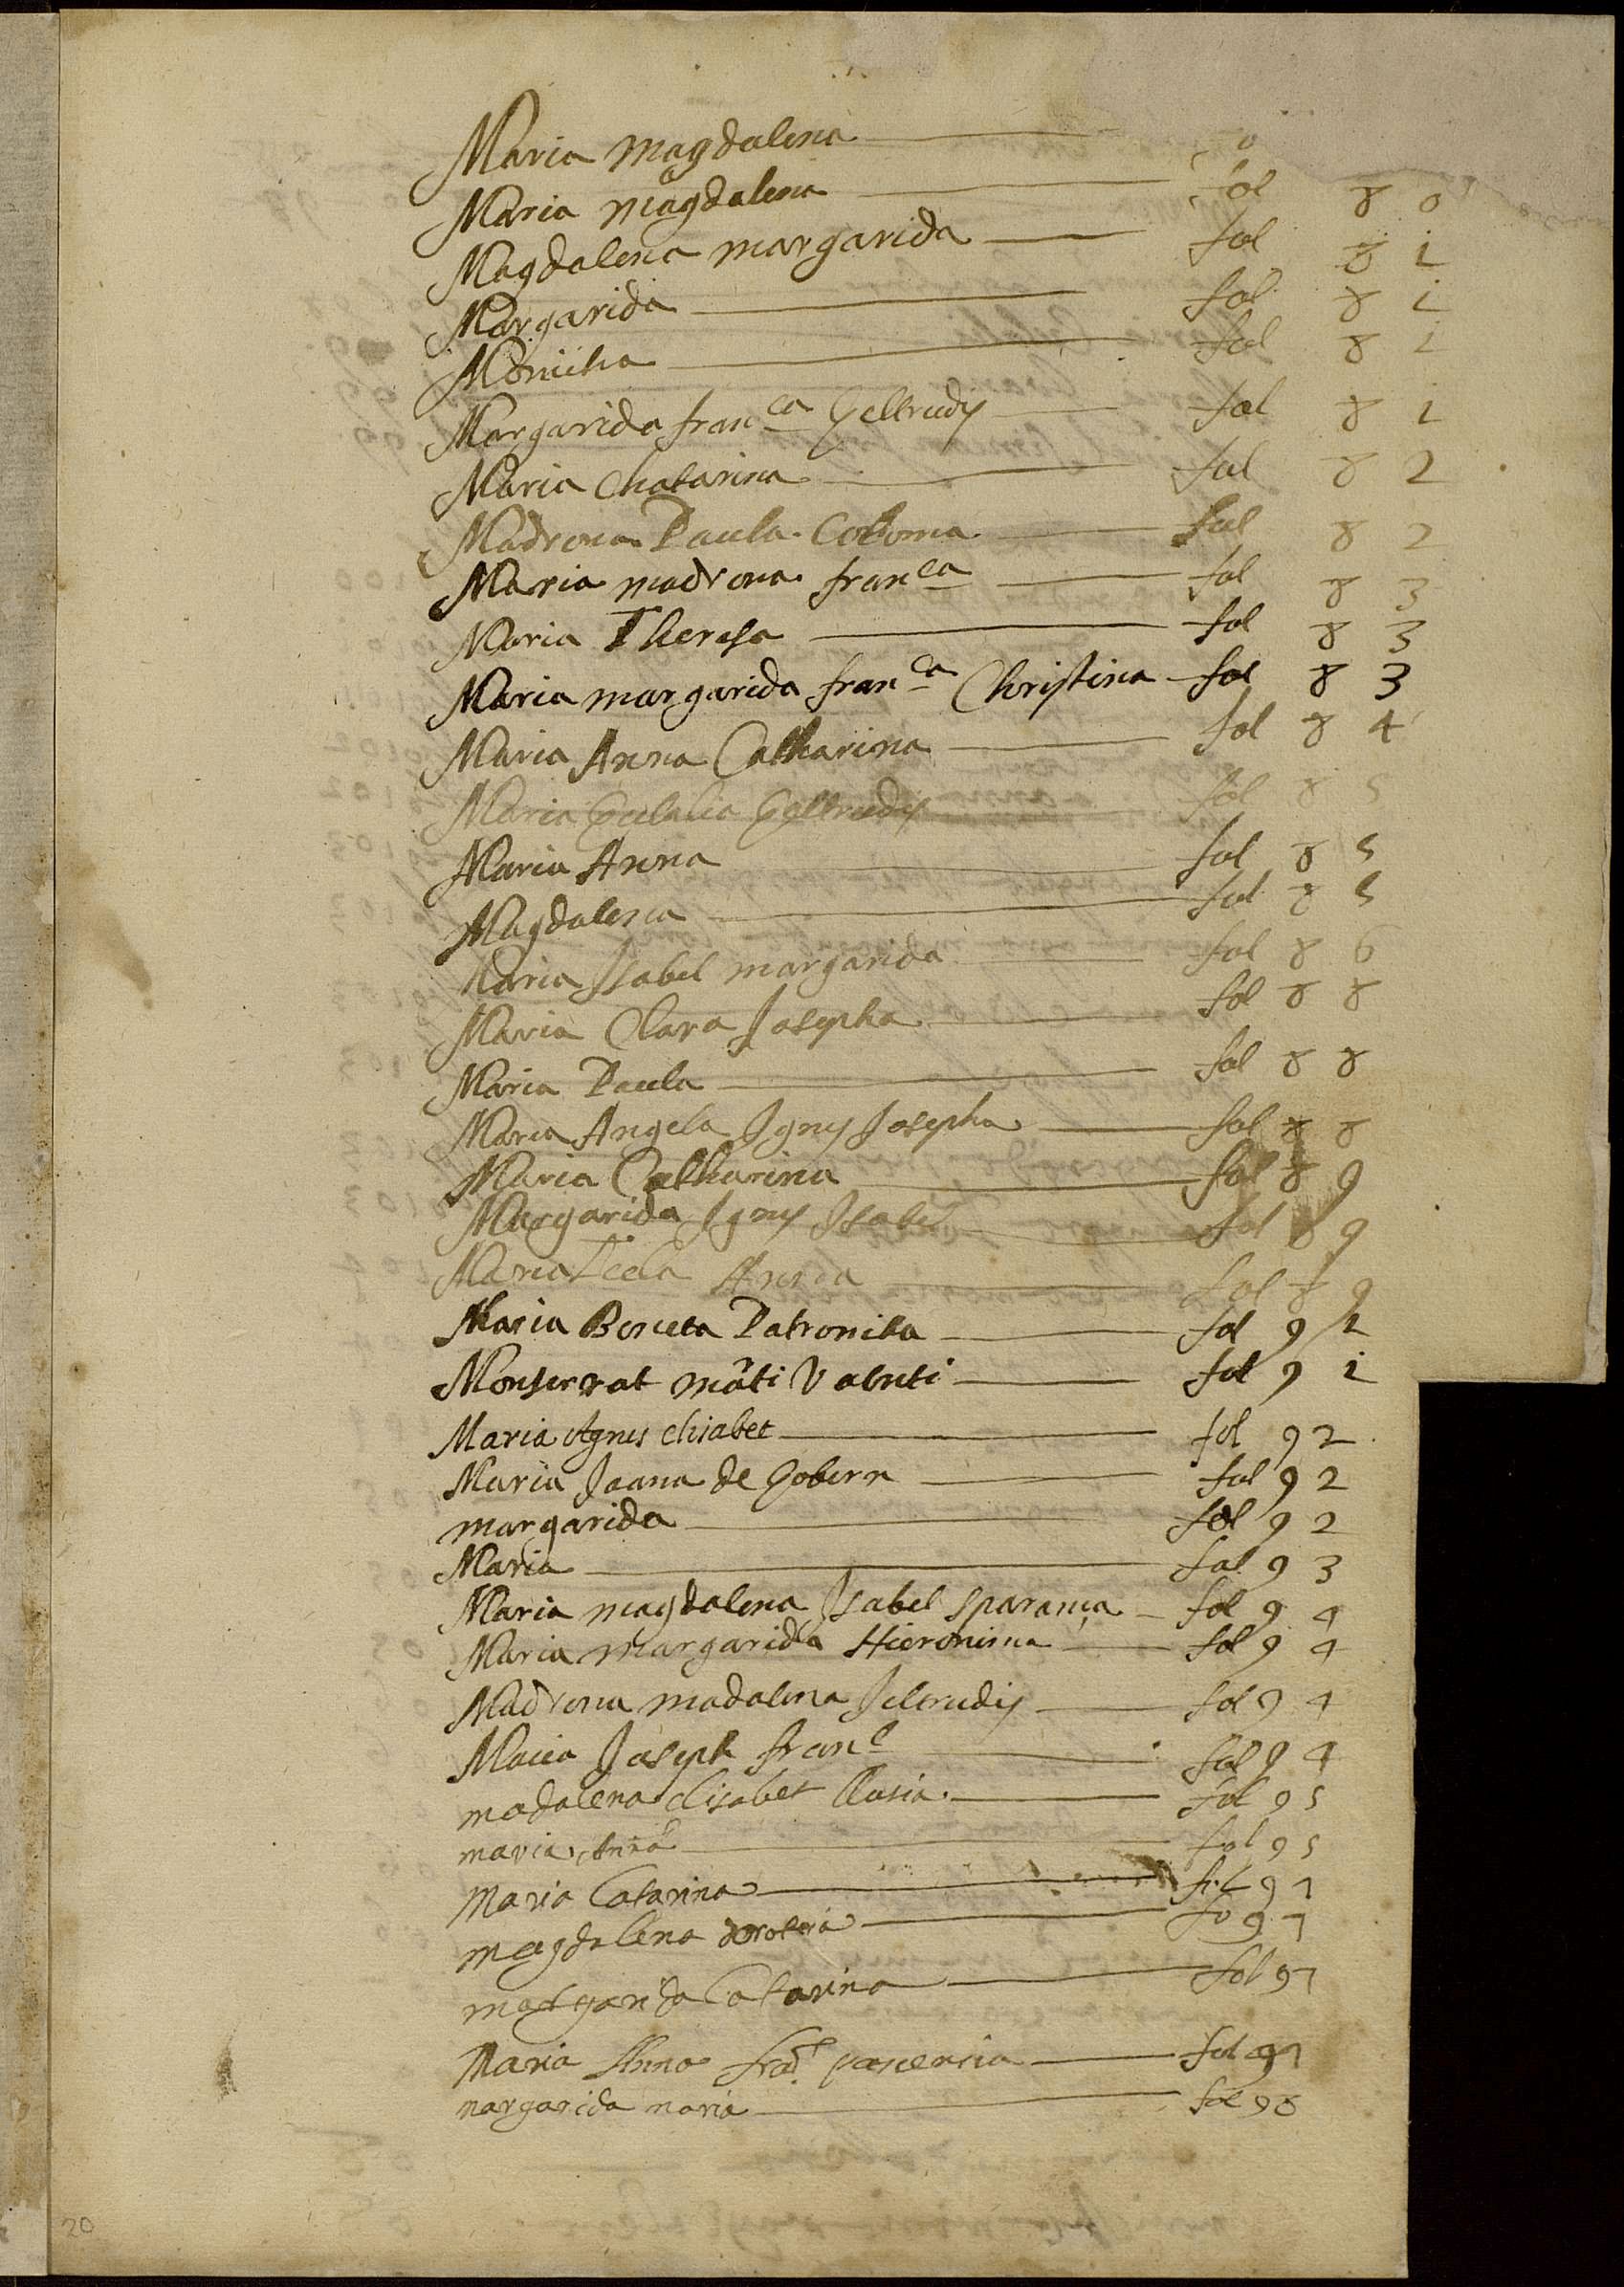 Maria Magdalena
Maria Magdalena fol 80
Magdalena margarida fol 81
Margarida fol 81
Monicha fol 81
Margarida fran^ca Geltrudis fol 81
Maria Chatarina fol 82
Madrona Paula Colloma fol 82
Maria madrona fran^ca fol 83
Maria Theresa fol 83
Maria margarida fran^ca Christina fol 83
Maria Anna Catharina fol 84
Maria Eulalia Geltrudis fol 85
Maria Anna fol 85
Magdalena fol 85
Maria Isabel margarida fol 86
Maria Clara Josepha fol 88
Maria Paula fol 88
Maria Angela Ignes Josepha fol 88
Maria Catharina fol 89
Margarida Ignes Isabel fol 89
Maria Tecla Anna fol 89
Maria Beneta Patronila fol 91
Monserrat mãti Valenti fol 91
Maria Agnes elisabet fol 92
Maria Joana de Gobern fol 92
margarida fol 92
Maria fol 93
Maria magdalena Isabel sparança fol 94
Maria Margarida Hieronima fol 94
Madrona madalena Jeltrudis fol 94
Macia Joseph fran^c fol 94
madalena elisabet llusia fol 95
maria Anna fol 95
Maria Catarina fol 97
magdalena dorotea fo 97
margarida Catarina fol 97
Maria Anna fol 97
margarida maria fol 98
20